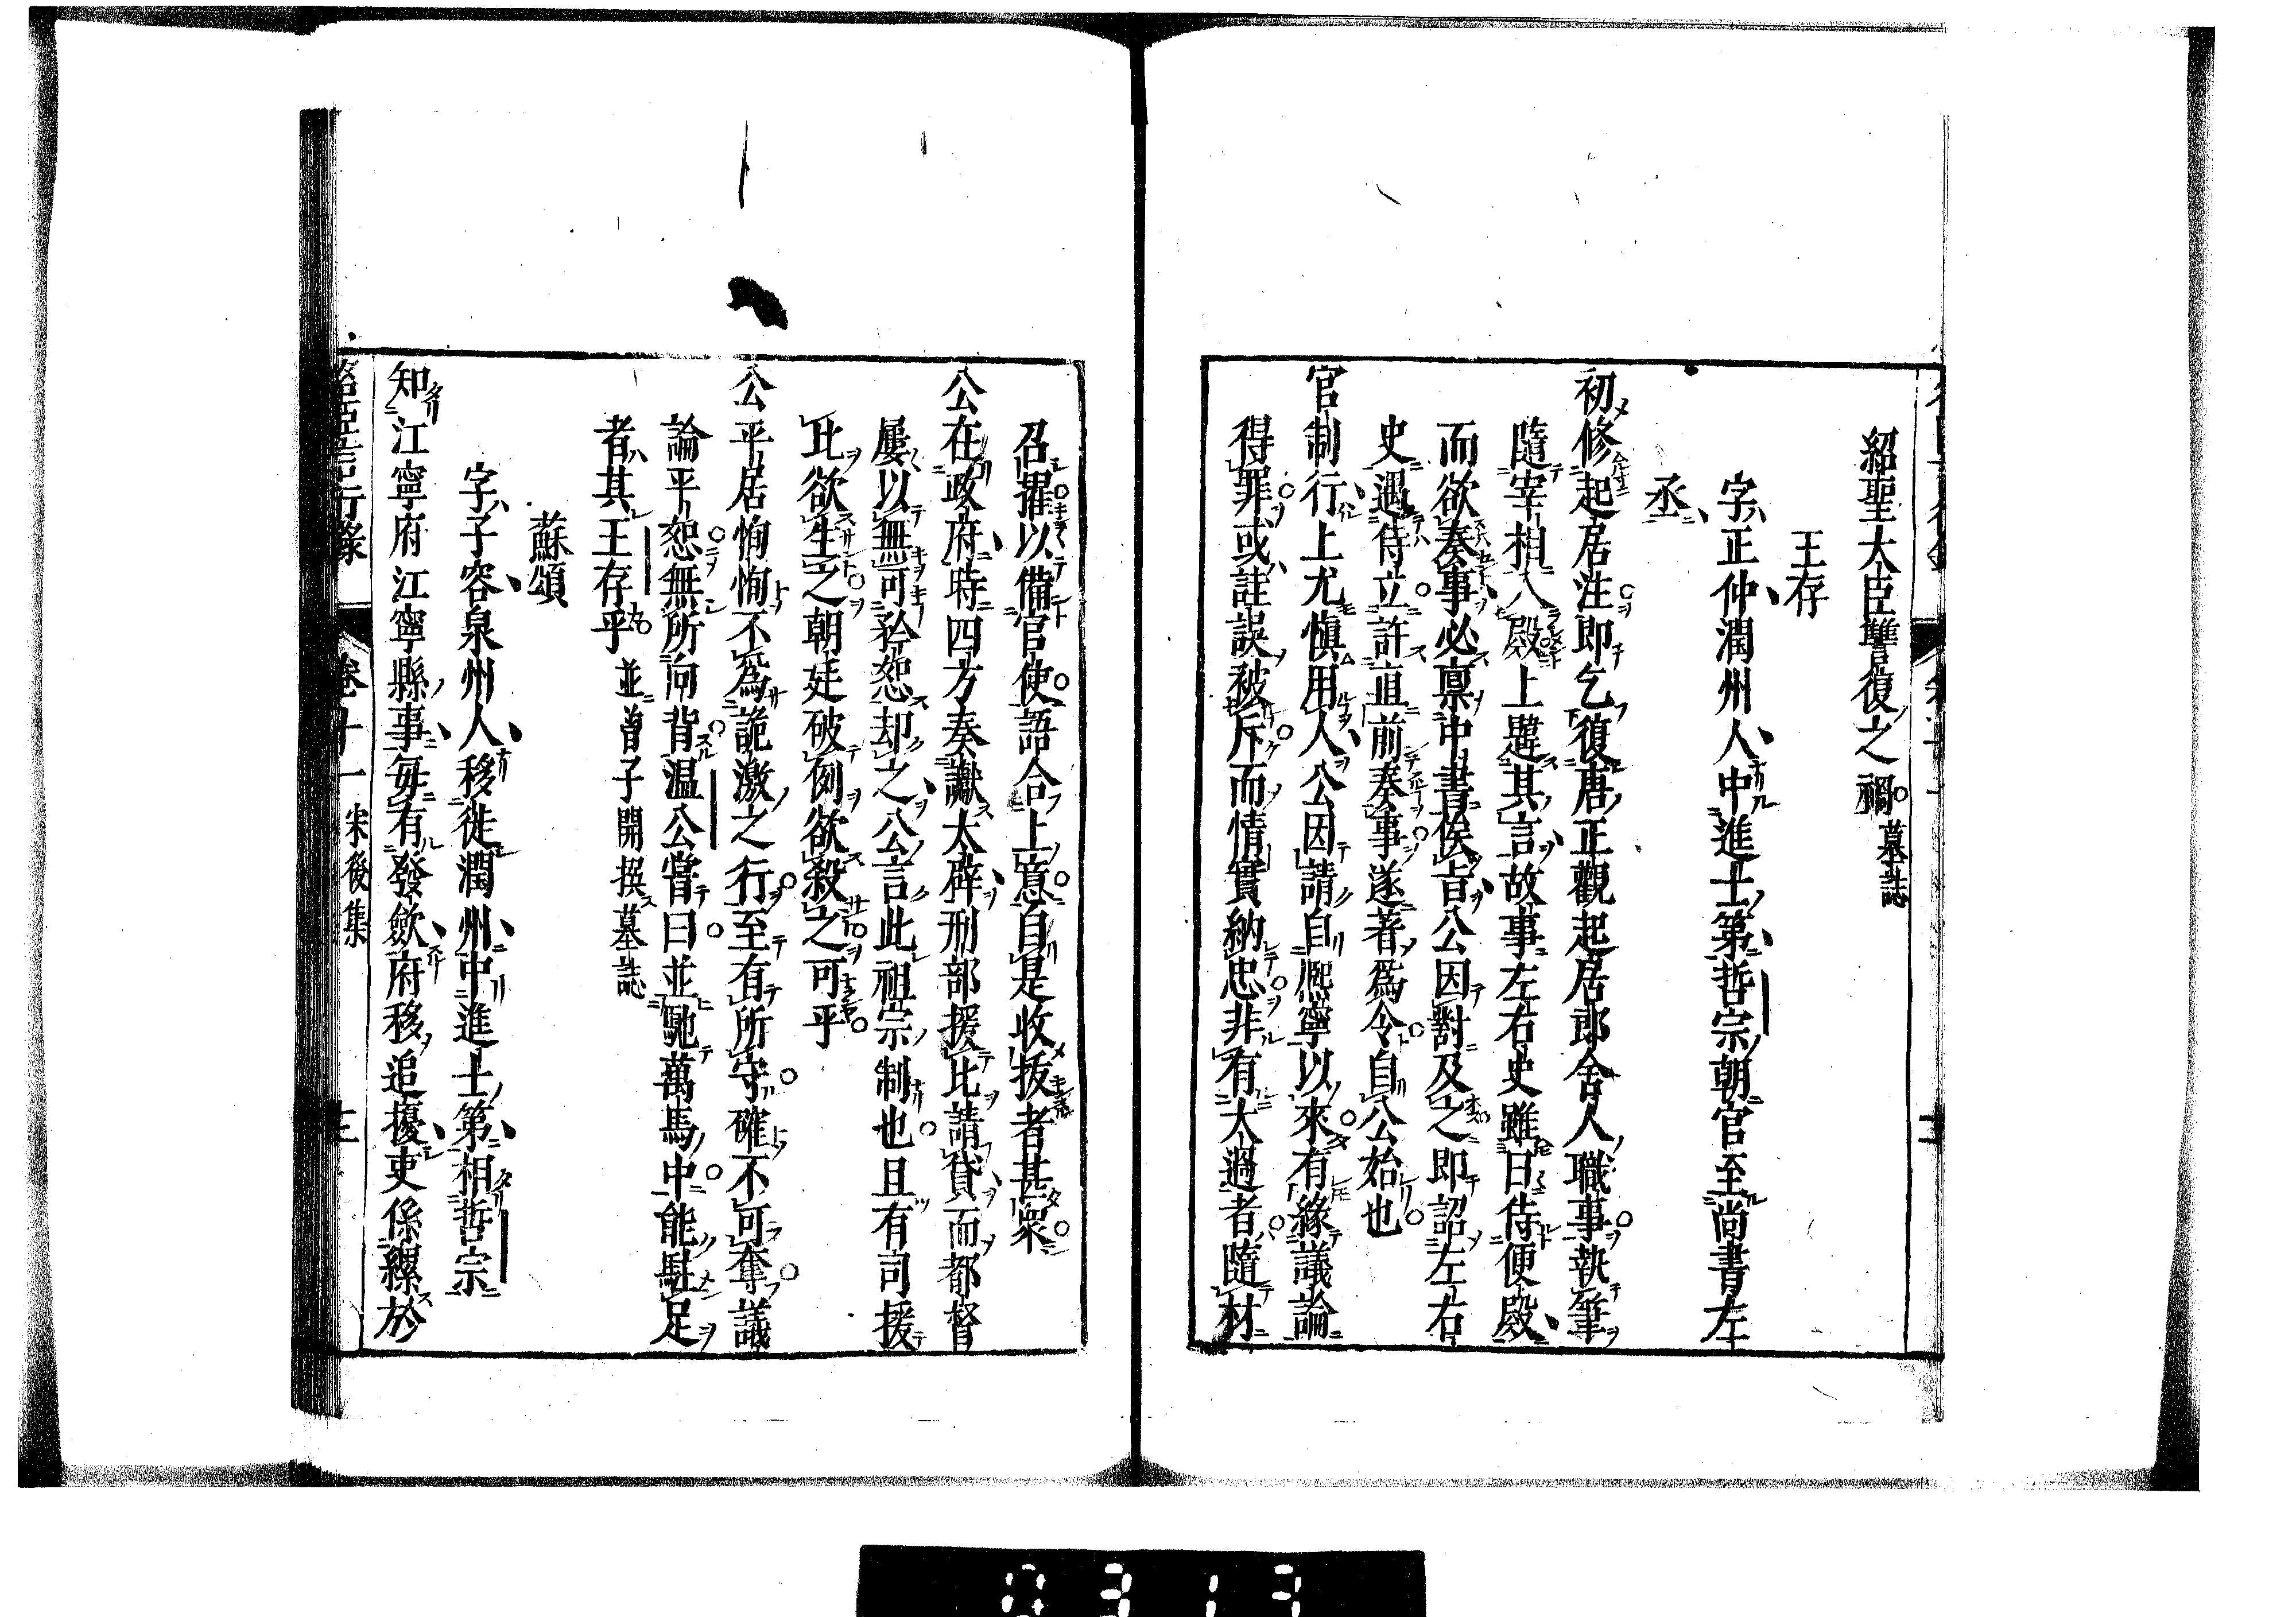 紹聖大臣讐復之禍墓誌
王存
字正仲潤州人中進士第哲宗朝官至尚書左
丞
初修起居注即乞復唐正觀起居郎舍人職事執筆
隨宰相入殿上選其言故事左右史雖日侍便殿
而欲奏事必禀中書俟旨公因對及之即詔左右
史遇侍立許直前奏事遂著爲令自公始也
官制行上尤慎用人公因請自熈寧以來有緣議論
得罪或註誤被斥而情實納忠非有大過者隨材
召擢以備官使語合上意自是收拔者甚衆
公在政府時四方奏讞大辟刑部援比請貸而都督
屢以無可矜恕却之公言此祖宗制也且有司援
此欲生之朝廷破例欲殺之可乎
公平居恂恂不為詭激之行至有所守確不可奪議
論平恕無所向背温公嘗曰並馳萬馬中能駐足
者其王存乎並曽子開撰墓誌
蘇頌
字子容泉州人移徙潤州中進士第相哲宗
知江寧府江寧縣事毎有發斂府移追擾吏係縲於
名臣言行錄 卷十一 宋後集
0313